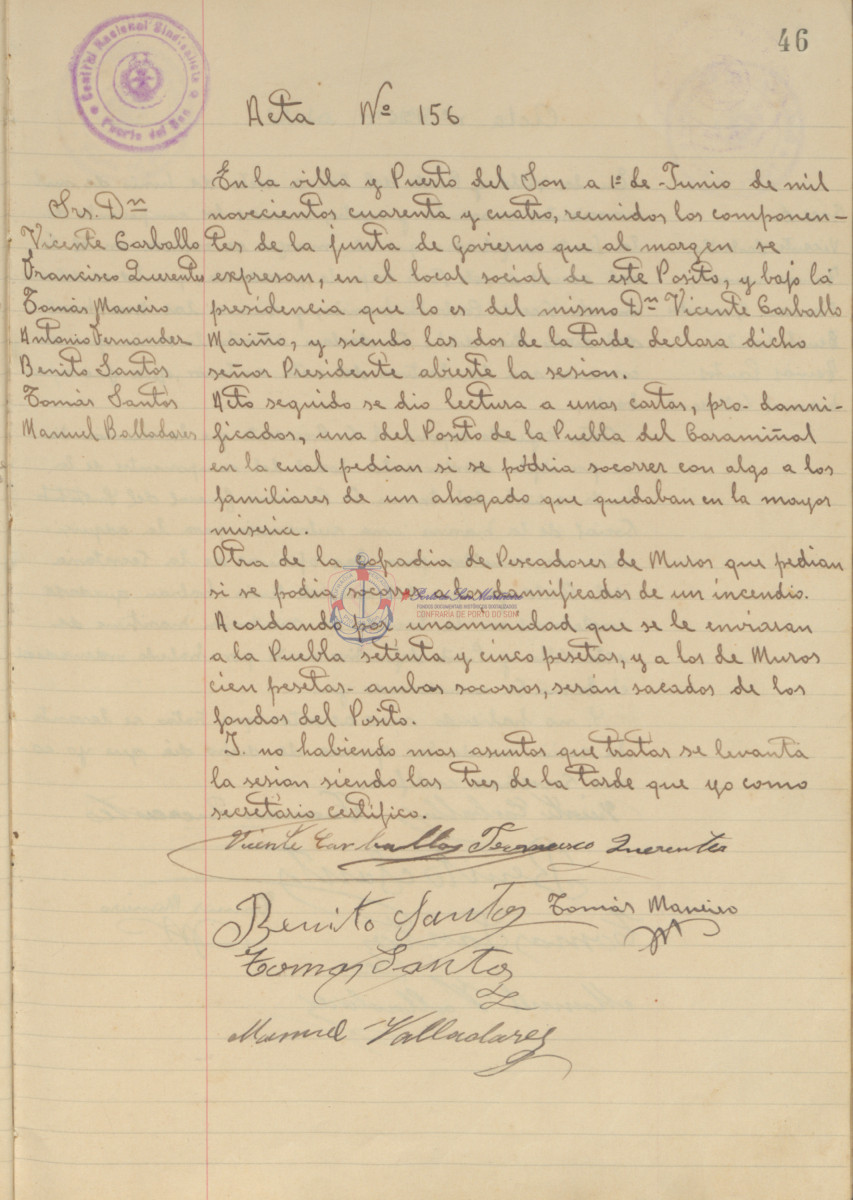 46
Central Nacional Sindicalista
Puerto del Son
Acta Nº 156
Srs. Dn
Vicente Carballo
Francisco Querentes
Tomás Maneiro
Antonio Fernandez
Benito Santos
Tomás Santos
Manuel Balladares
En la villa y Puerto del Son a 1º de Junio de mil
novecientos cuarenta y cuatro, reunidos los componen-
tes de la junta de Govierno que al margen se
expresan, en el local social de este Posito, y bajo la
presidencia que lo es del mismo Dn Vicente Carballo
Mariño, y siendo las dos de la tarde declara dicho
señor Presidente abierte la sesion.
Acto seguido se dio lectura a unas cartas, pro-danni-
ficados, una del Posito de la Puebla del Caramiñal
en la cual pedian si se podria socorrer con algo a los
familiares de un ahogado que quedaban en la mayor
miseria.
Otra de la cofradia de Pescadores de Muros que pedian
si se podia socorrer a los damnificados de un incendio.
Acordando por unanimidad que se le enviaran
a la Puebla setenta y cinco pesetas, y a los de Muros
cien pesetas- ambos socorros, serán sacados de los
fondos del Posito.
Y. no habiendo mas asuntos que tratar se levanta
la sesion siendo las tres de la tarde que yo como
secretario certifico.
Vicente Carballo Francisco Querentes
Benito Santos Tomás Maneiro
Tomas Santos
Manuel Valladares
FONDOS DOCUMENTAIS HISTÓRICOS DIXITALIZADOS
CONFRARÍA DE PORTO DO SON